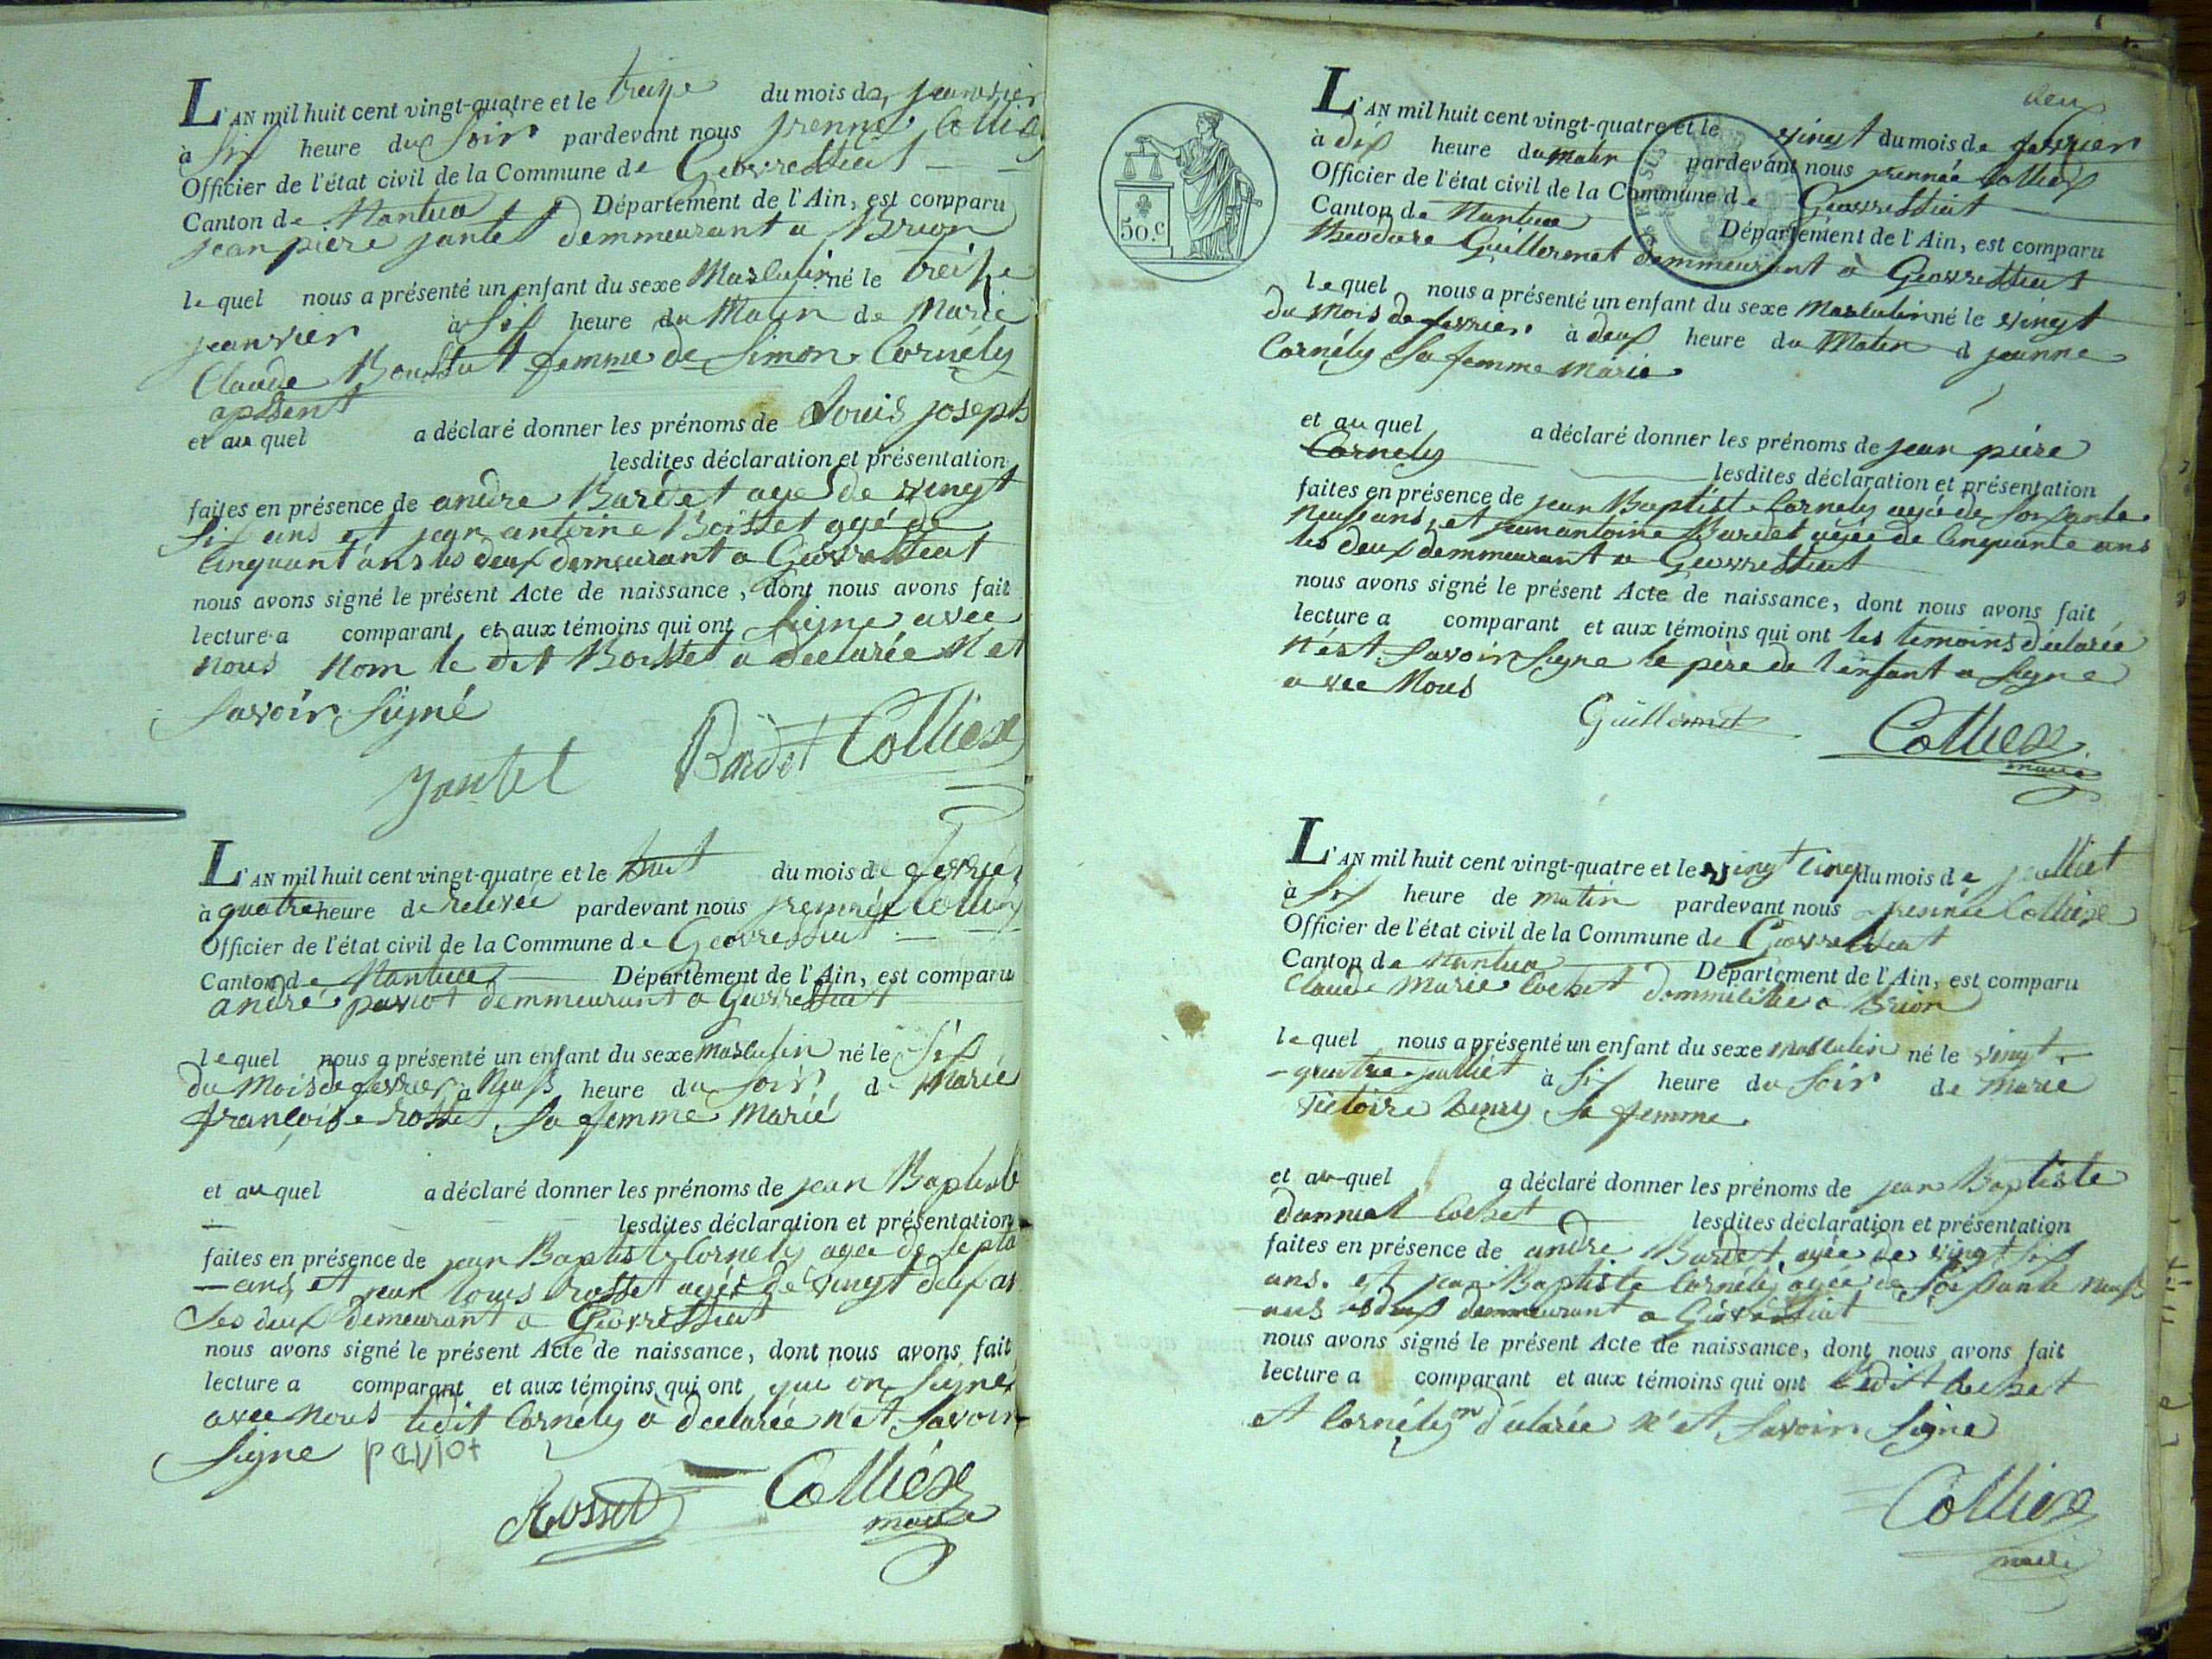 L'AN mil huit cent vingt-quatre et le treize du mois de janvier
à six heure du soir pardevant nous
Officier de l'état civil de la Commune de Geovressiat
Canton de Nantua Département de l'Ain, est comparu
jean piere jantet demmeurant a Brion
le quel nous a présenté un enfant du sexe Masculin né le treize
janvier à six heure du Matin de Marie
Claude femme de Simon Cornély
apssent
et au quel a déclaré donner les prénoms de Louis joseph
lesdites déclaration et présentation
faites en présence de andre Bardet age de vingt
six ans et jean antoine Boisset agé de
Cinquant ans les deux demeurant a Geovressiat
nous avons signé le présent Acte de naissance, dont nous avons fait
lecture a comparant et aux témoins qui ont signe avec
nous Nom le dit Boisset a declarée n'et
savoir signé
Jantet Bardet Colliex
L'AN mil huit cent vingt-quatre et le huit du mois de fevrier
à quatre heure de relevée pardevant nous
Officier de l'état civil de la Commune de Geovressiat
Canton de Nantua Département de l'Ain, est comparu
andré paviot demmeurant a Geovressiat
le quel nous a présenté un enfant du sexe masculin né le six
du Mois de fevrier à Neuf heure du soir de Marie
françoise rosset sa femme Marié
et au quel a déclaré donner les prénoms de jean Baptiste
lesdites déclaration et présentation
faites en présence de jean Baptiste Cornely agée de
ans et jean Louis rosset agée de vingt deux ans
Les deux demeurant a Geovressiat
nous avons signé le présent Acte de naissance, dont nous avons fait
lecture a comparant et aux témoins qui ont qui on signe
avec nous ledit Cornély a declarée n'et savoir
signe paviot
Rosset Colliéx
maire
deux
50.c
L'AN mil huit cent vingt-quatre et le vingt du mois de fevrier
à dix heure du matin pardevant nous Colliex
Officier de l'état civil de la Commune de Geovressiat
Canton de Nantua Département de l'Ain, est comparu
theodore Guillermet demmeurant à Geovressiat
le quel nous a présenté un enfant du sexe Masculin né le vingt
du Mois de fevrier à deux heure du Matin d jeanne
Cornély sa femme Marié
et au quel a déclaré donner les prénoms de jean piére
Cornely lesdites déclaration et présentation
faites en présence de jean Baptiste Cornely agée de soixante
Neuf ans et jean antoine Bardet agée de Cinquante ans
les deux demmeurant a Geovressiat
nous avons signé le présent Acte de naissance, dont nous avons fait
lecture a comparant et aux témoins qui ont les temoins déclarée
n'ést savoir signe le père de l'enfant a signe
avec Nous
Guillermet Colliex
maire
L'AN mil huit cent vingt-quatre et le vingt Cinq du mois de juilliet
à six heure de matin pardevant nous Colliex
Officier de l'état civil de la Commune de Geovressiat
Canton de Nantua Département de l'Ain, est comparu
Claude Marie Cochet a Brion
le quel nous a présenté un enfant du sexe masculin né le vingt
quatre juilliet à six heure du soir de Marie
victoire henry sa femme
et au quel a déclaré donner les prénoms de jean Baptiste
Cochet lesdites déclaration et présentation
faites en présence de andre Bardet agée de vingt six
ans et jean Baptiste Cornély agée de soissante neuf
ans les deux demmeurant a Geovressiat
nous avons signé le présent Acte de naissance, dont nous avons fait
lecture a comparant et aux témoins qui ont
et Cornély on déclarée n'et savoir signe
Colliex
maire